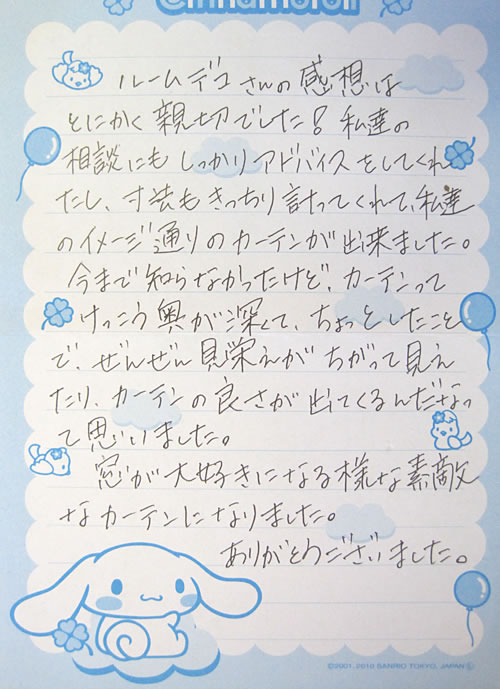 Cinnamoroll
ルームデコさんの感想は
とにかく親切でした！私達の
相談にもしっかりアドバイスをしてくれ
たし、寸法もきっちり計ってくれて、私達
のイメージ通りのカーテンが出来ました。
今まで知らなかったけど、カーテンって
けっこう奥が深くて、ちょっとしたこと
で、ぜんぜん見栄えがちがって見え
たり、カーテンの良さが出てくるんだなっ
て思いました。
窓が大好きになる様な素敵
なカーテンになりました。
ありがとうございました。
©2001, 2010 SANRIO TOKYO, JAPAN Ⓛ